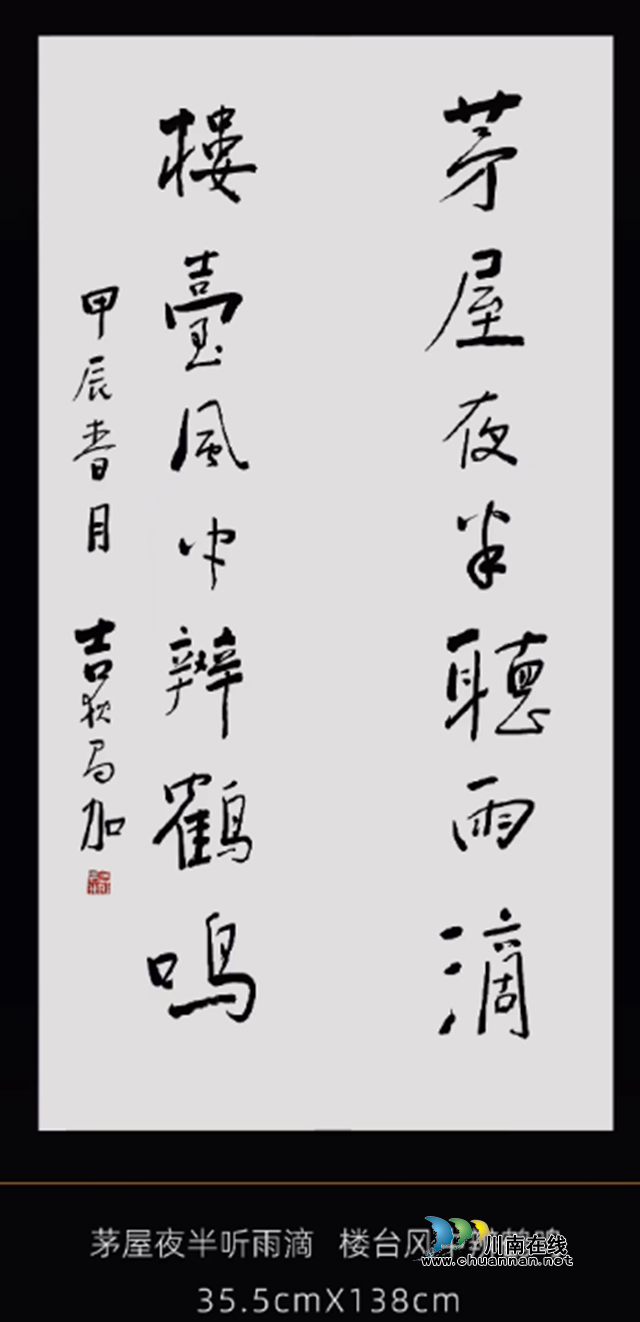 茅屋夜半聽雨滴
樓臺風中辨鶴鳴
甲辰春月 吉狄馬加
茅屋夜半听雨滴 楼台风中辨鹤鸣
川南在线
www.chuannan.net
35.5cmX138cm